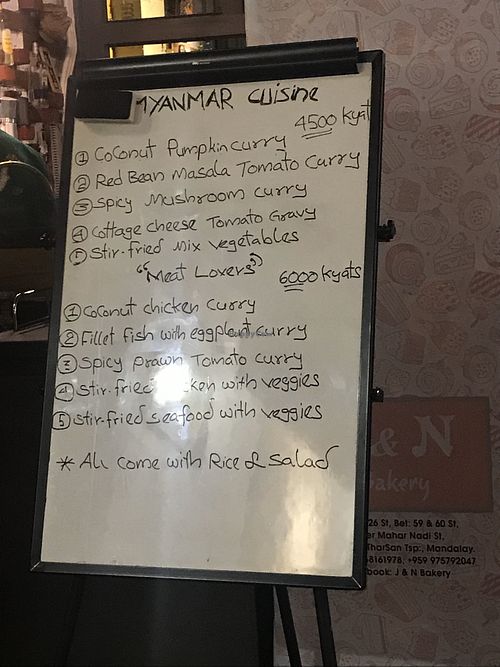 MYANMAR Cuisine
4500 Kyat
① Coconut Pumpkin curry
② Red Bean Masala Tomato Curry
③ Spicy Mushroom curry
④ Cottage cheese Tomato Gravy
⑤ Stir-fried Mix vegetables
"Meat Lovers"
6000 Kyats
① Coconut chicken curry
② Fillet fish with eggplant curry
③ Spicy Prawn Tomato curry
④ Stir-fried cken with veggies
⑤ Stir-fried seafood with veggies
* All come with Rice & Salad
& N
bakery
26 St, Bet: 59 & 60 St,
er Mahar Nadi St,
TharSan Tsp:, Mandalay.
68161978, +959 975792047
book: J & N Bakery